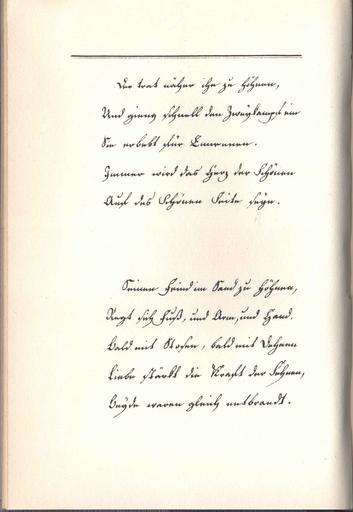 Der trat näher ihr zu höhnen,
Und gieng schnell den Zweykampf ein
Sie erbebt für
Immer wird das Herz der Schönen
Auf des Schönen Seite seyn.
Seinen Feind im Sand zu höhnen,
Regt sich Fuß, und Arm, und Hand.
Bald mit Stosen, bald mit Dehnen
Liebe stärkt die Kraft der Sehnen,
Beyde waren gleich entbrandt.